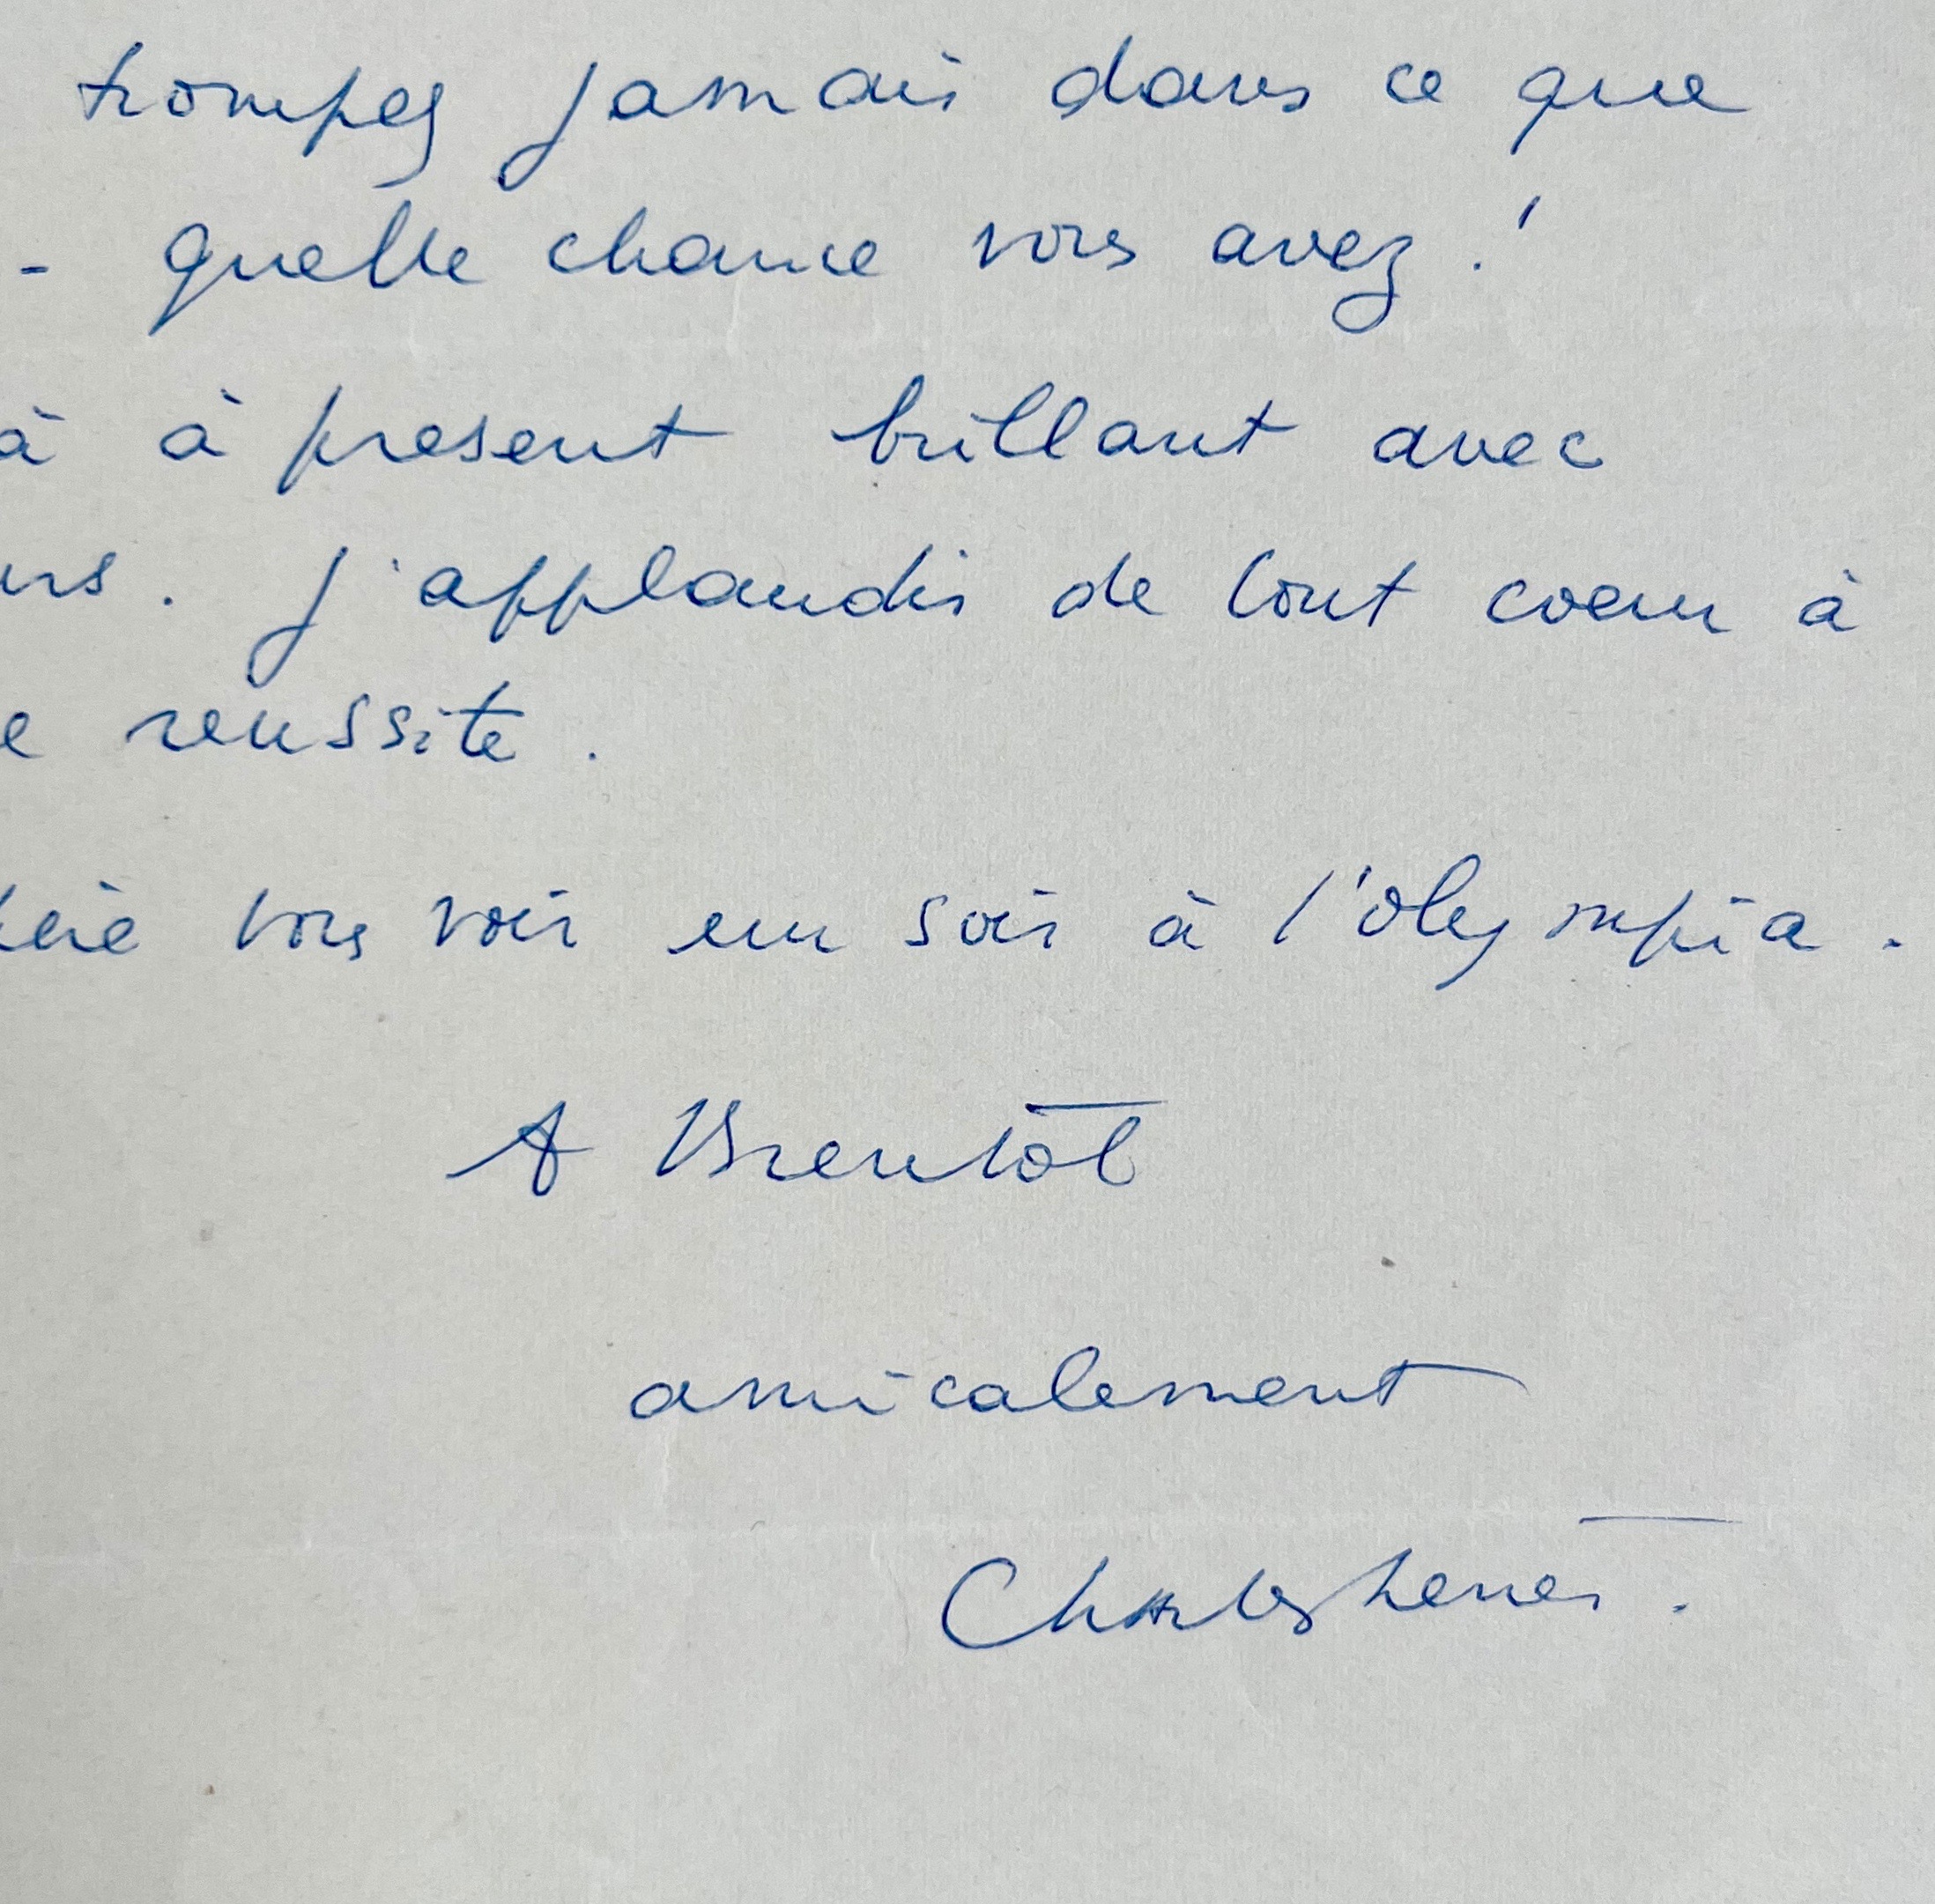 trompez jamais dans ce que
- quelle chance vous avez !
à à présent brillant avec
urs. J'applaudis de tout coeur à
e reussite.
vous voir un soir à l'olympia.
A Bientôt
amicalement
Charles